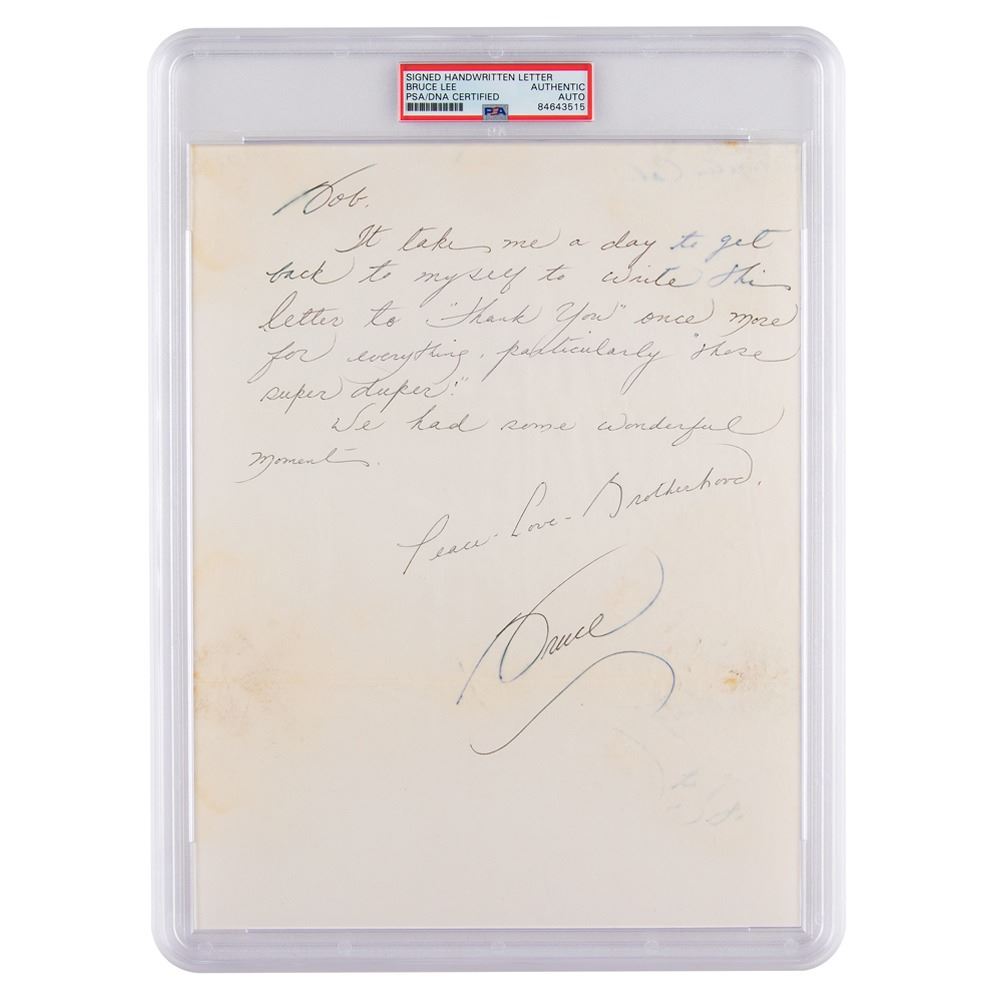 SIGNED HANDWRITTEN LETTER
BRUCE LEE AUTHENTIC
PSA/DNA CERTIFIED AUTO
PSA 84643515
Bob.
It takes me a day to get
back to myself to write this
letter to "Thank You" once more
for everything, particularly "those
super duper!"
We had some wonderful
moments.
Peace - Love - Brotherhood.
Bruce